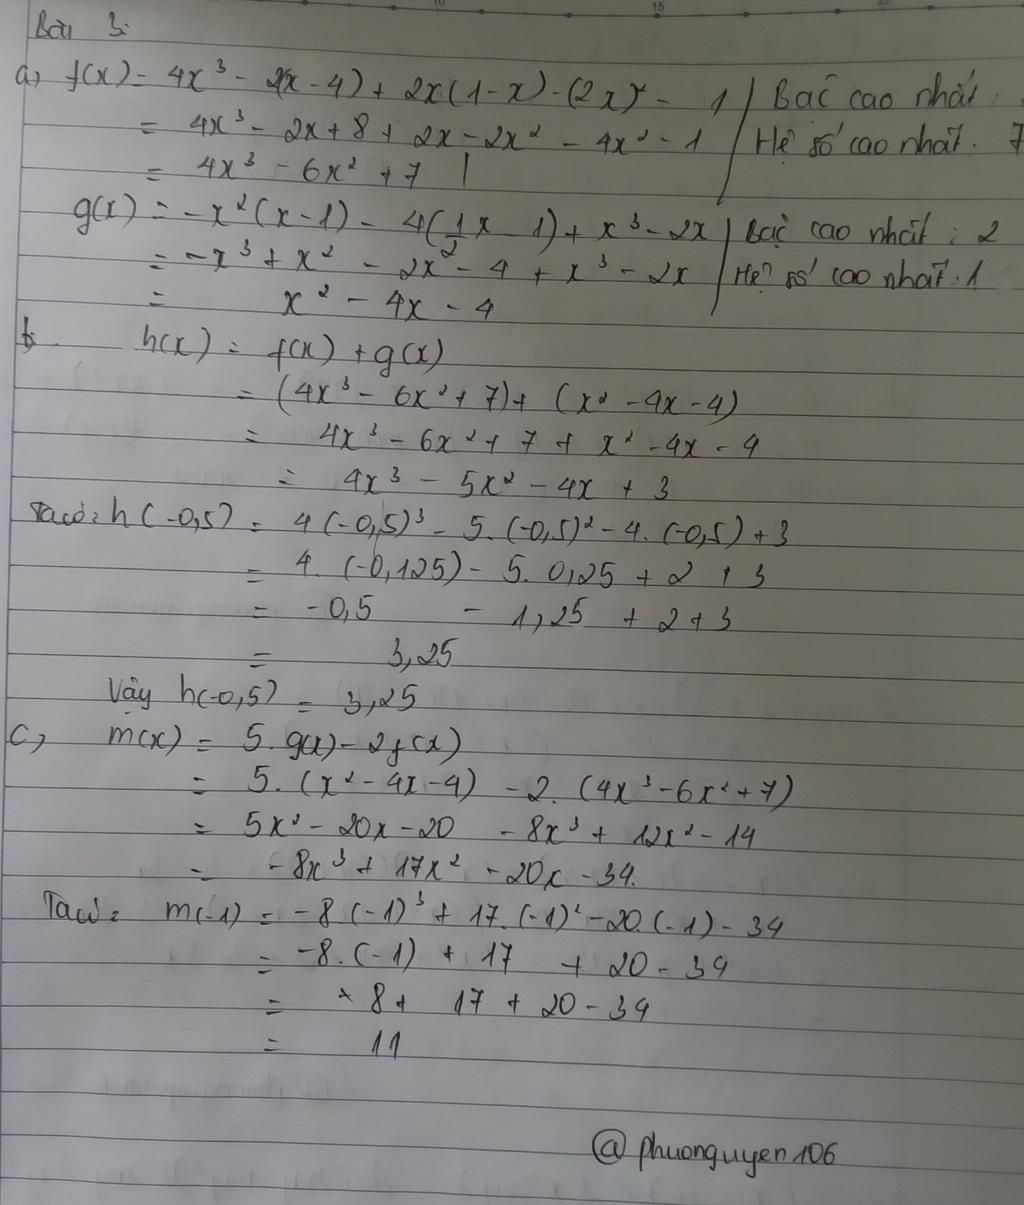 Bài 3:
a, f(x) = 4x³ - 2(x - 4) + 2x(1-x) - (2x)² - 1 | Bậc cao nhất
= 4x³ - 2x + 8 + 2x - 2x² - 4x² - 1 | Hệ số cao nhất. 7
= 4x³ - 6x² + 7
g(x) = -x²(x-1) - 4(1/2x - 1) + x³ - 2x | Bậc cao nhất : 2
= -x³ + x² - 2x - 4 + x³ - 2x | Hệ số cao nhất. 1
= x² - 4x - 4
b. h(x) = f(x) + g(x)
= (4x³ - 6x² + 7) + (x² - 4x - 4)
= 4x³ - 6x² + 7 + x² - 4x - 4
= 4x³ - 5x² - 4x + 3
Ta có: h(-0,5) = 4(-0,5)³ - 5.(-0,5)² - 4.(-0,5) + 3
= 4.(-0,125) - 5. 0,25 + 2 + 3
= -0,5 - 1,25 + 2 + 3
= 3,25
Vậy h(-0,5) = 3,25
c, m(x) = 5.g(x) - 2f(x)
= 5.(x² - 4x - 4) - 2.(4x³ - 6x² + 7)
= 5x² - 20x - 20 - 8x³ + 12x² - 14
= -8x³ + 17x² - 20x - 34.
Ta có: m(-1) = -8(-1)³ + 17.(-1)² - 20.(-1) - 34
= -8.(-1) + 17 + 20 - 34
= + 8 + 17 + 20 - 34
= 11
@phuonguyen106